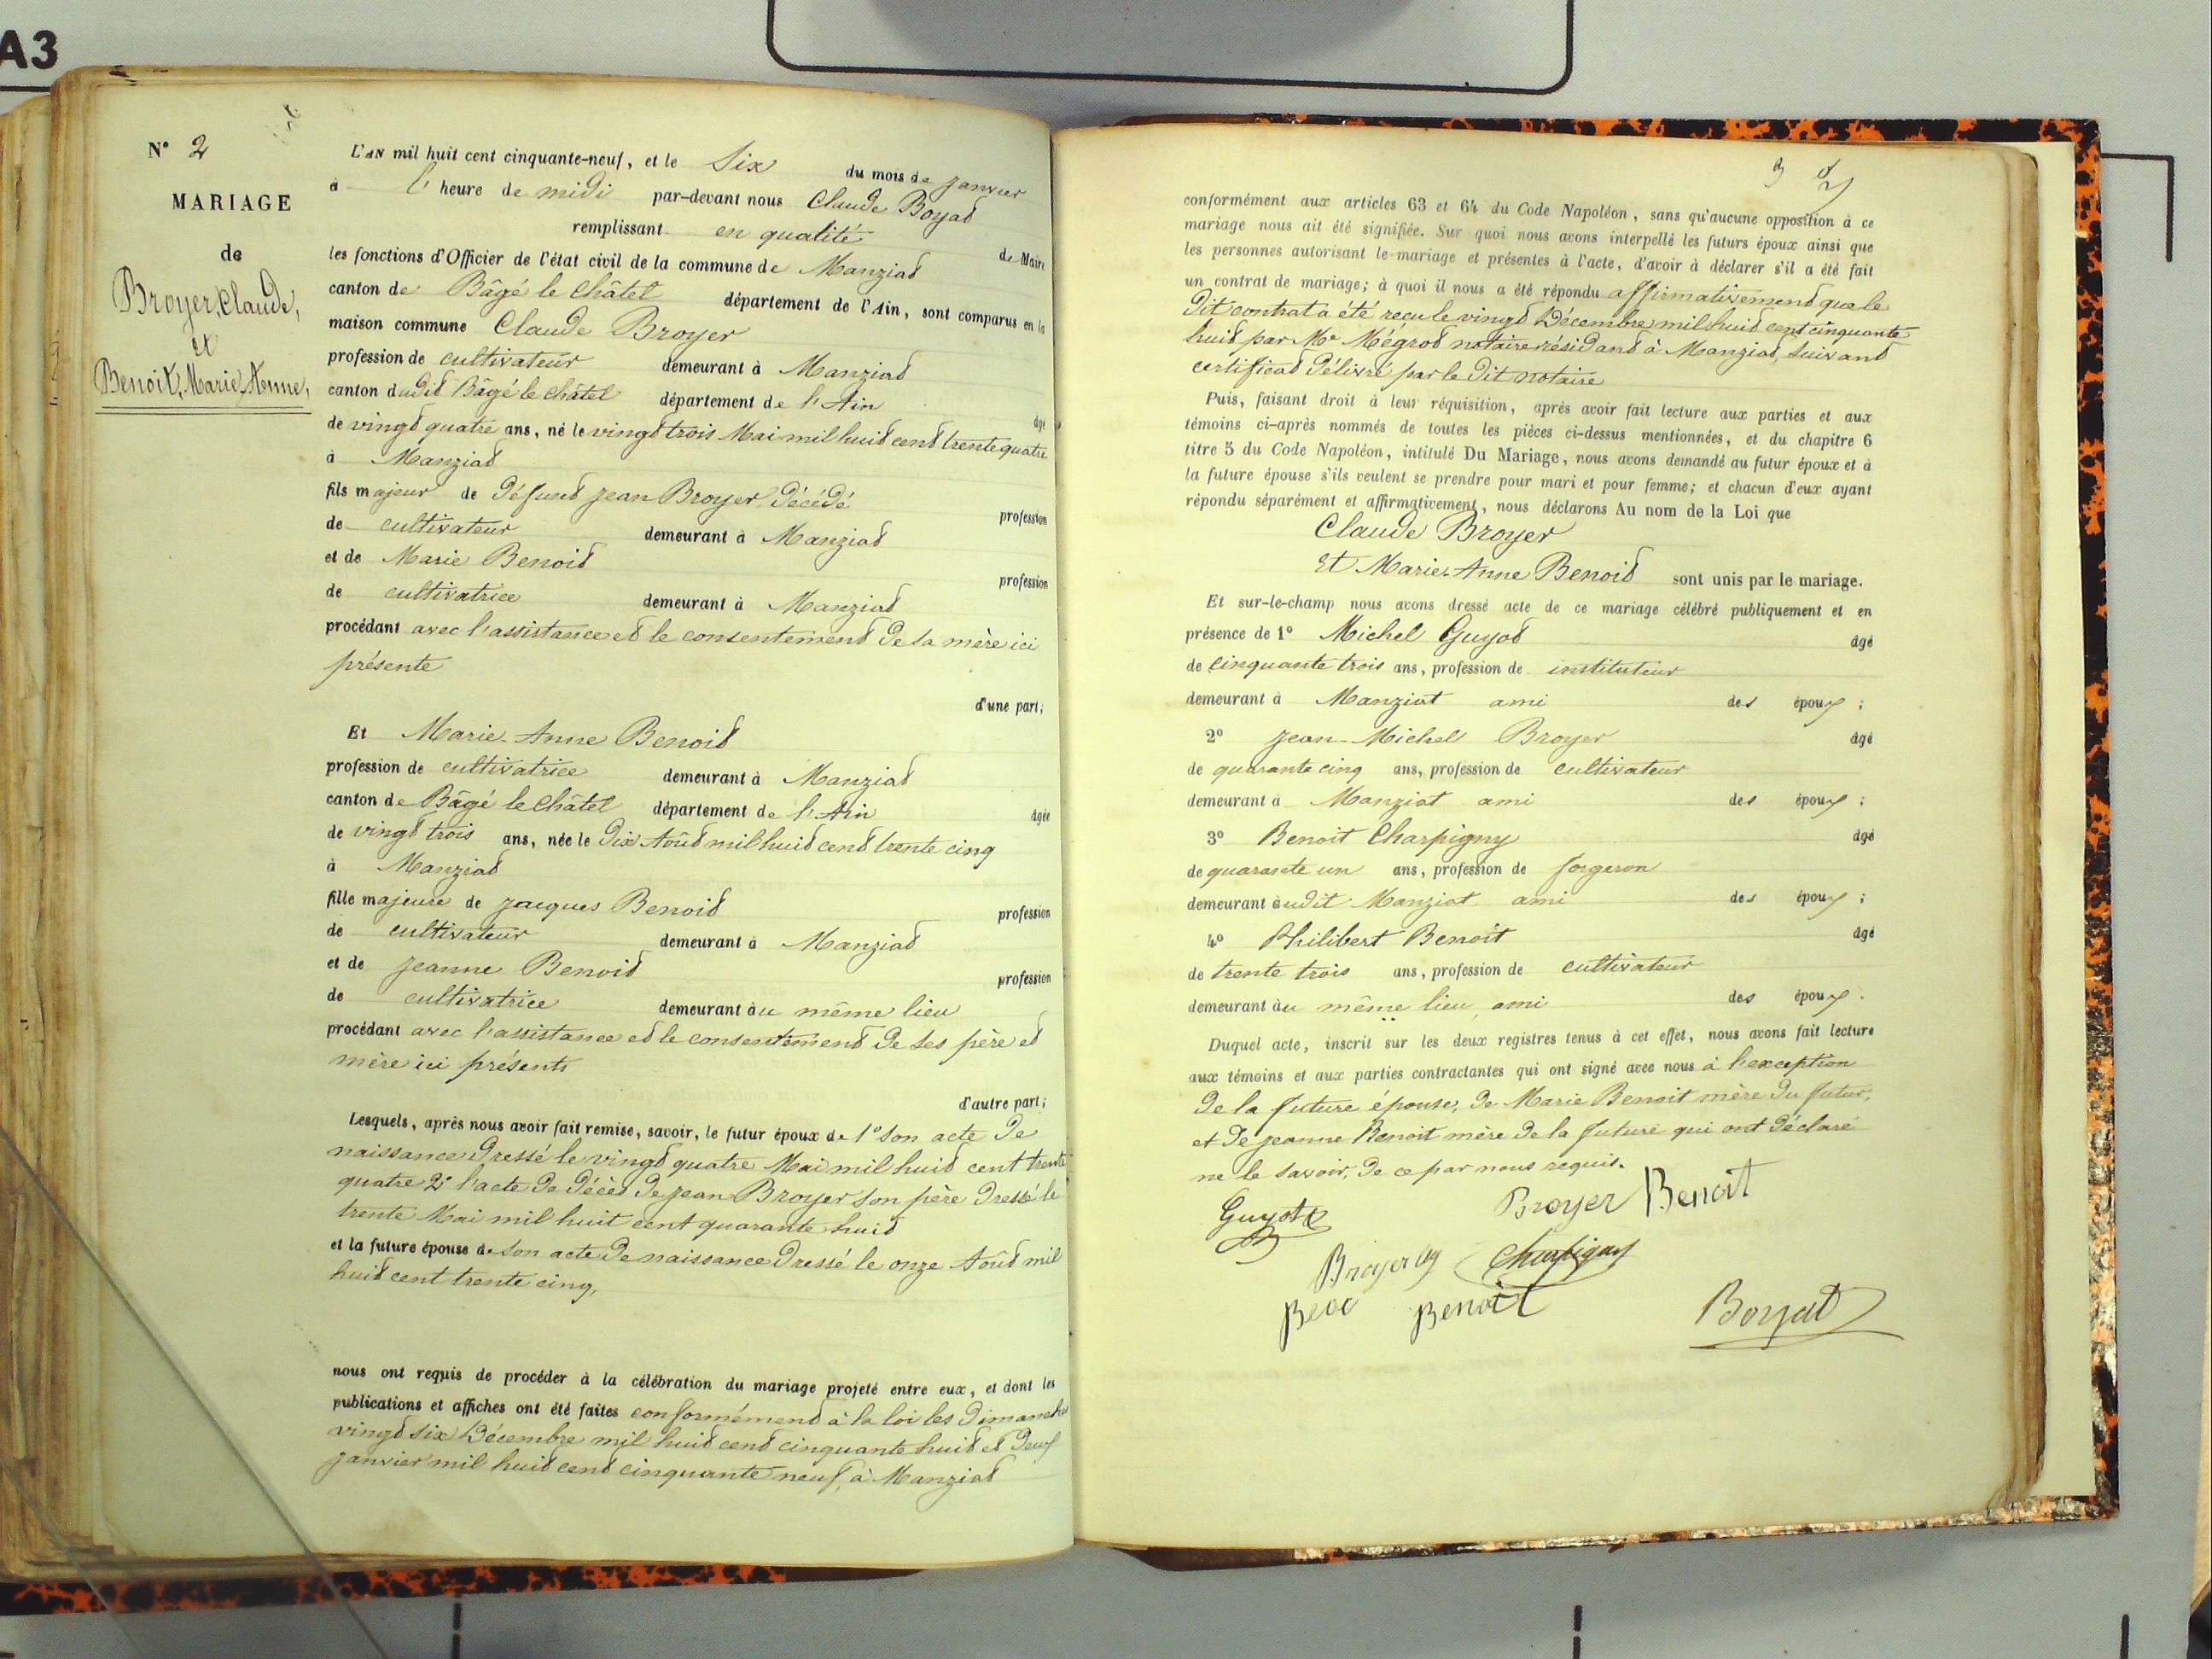 A3
N° 2
MARIAGE
de
Broyer, Claude,
et
Benoit, Marie Anne,
L'AN mil huit cent cinquante-neuf, et le Six du mois de janvier
à l'heure de midi par-devant nous Claude Boyat
remplissant en qualité de Maire
les fonctions d'Officier de l'état civil de la commune de Manziat
canton de Bâgé le Châtel département de l'Ain, sont comparus en la
maison commune Claude Broyer
profession de cultivateur demeurant à Manziat
canton dudit Bâgé le Châtel département de l'Ain âgé
de vingt quatre ans, né le vingt trois Mai mil huit cent trente quatre
à Manziat
fils majeur de défunt jean Broyer, décédé profession
de cultivateur demeurant à Manziat
et de Marie Benoit profession
de cultivatrice demeurant à Manziat
procédant avec l'assistance et le consentement de sa mère ici
présente
d'une part;
Et Marie-Anne Benoit
profession de cultivatrice demeurant à Manziat
canton de Bâgé le Châtel département de l'Ain âgée
de vingt trois ans, née le Dix Août mil huit cent trente cinq
à Manziat
fille majeure de jacques Benoit profession
de cultivateur demeurant à Manziat
et de jeanne Benoit profession
de cultivatrice demeurant àu même lieu
procédant avec l'assistance et le consentement de ses père et
mère ici présents
d'autre part;
Lesquels, après nous avoir fait remise, savoir, le futur époux de 1° son acte de
naissance dressé le vingt quatre Mai mil huit cent trente
quatre 2° l'acte de décès de jean Broyer son père dressé le
trente Mai mil huit cent quarante huit
et la future épouse de son acte de naissance dressé le onze Août mil
huit cent trente cinq,
nous ont requis de procéder à la célébration du mariage projeté entre eux, et dont les
publications et affiches ont été faites conformément à la loi les dimanches
vingt six Décembre mil huit cent cinquante huit et deux
janvier mil huit cent cinquante neuf, à Manziat
conformément aux articles 63 et 64 du Code Napoléon, sans qu'aucune opposition à ce
mariage nous ait été signifiée. Sur quoi nous avons interpellé les futurs époux ainsi que
les personnes autorisant le mariage et présentes à l'acte, d'avoir à déclarer s'il a été fait
un contrat de mariage; à quoi il nous a été répondu affirmativement que le
dit contrat a été reçu le vingt Décembre mil huit cent cinquante
huit par Me Mégrot notaire résidant à Manziat, suivant
certificat délivré par le dit notaire
Puis, faisant droit à leur réquisition, après avoir fait lecture aux parties et aux
témoins ci-après nommés de toutes les pièces ci-dessus mentionnées, et du chapitre 6
titre 5 du Code Napoléon, intitulé Du Mariage, nous avons demandé au futur époux et à
la future épouse s'ils veulent se prendre pour mari et pour femme; et chacun d'eux ayant
répondu séparément et affirmativement, nous déclarons Au nom de la Loi que
Claude Broyer
Et Marie-Anne Benoit sont unis par le mariage.
Et sur-le-champ nous avons dressé acte de ce mariage célébré publiquement et en
présence de 1° Michel Guyot âgé
de cinquante trois ans, profession de instituteur
demeurant à Manziat ami des époux ;
2° jean-Michel Broyer âgé
de quarante cinq ans, profession de cultivateur
demeurant à Manziat ami des époux ;
3° Benoit Charpigny âgé
de quarante un ans, profession de forgeron
demeurant àudit Manziat ami des époux ;
4° Philibert Benoit âgé
de trente trois ans, profession de cultivateur
demeurant àu même lieu, ami des époux .
Duquel acte, inscrit sur les deux registres tenus à cet effet, nous avons fait lecture
aux témoins et aux parties contractantes qui ont signé avec nous à l'exception
de la future épouse, de Marie Benoit mère du futur,
et de jeanne Benoit mère de la future qui ont déclaré
ne le savoir, de ce par nous requis.
Guyot Broyer Benoit
Broyer Charpigny
Benoit Boyat